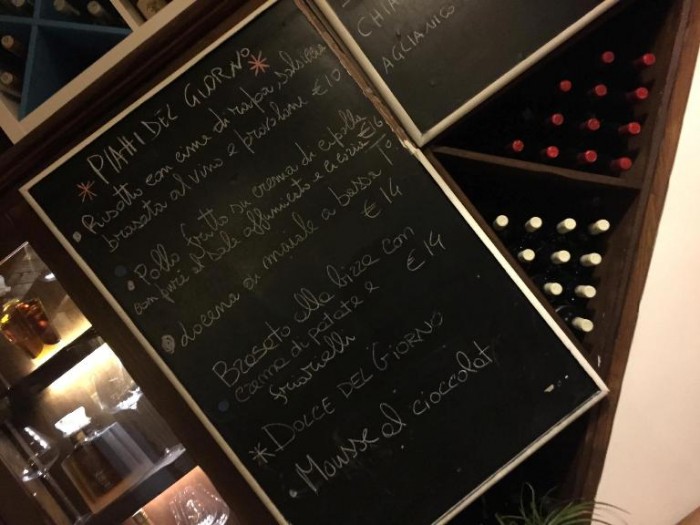 CHIA
AGLIANICO
* PIATTI DEL GIORNO *
Risotto con cime di rapa salsiccia
brasata al vino e provolone €10
Pollo fritto su crema di cipolle
con purè al sale affumicato e cicoria €16
locena di maiale a bassa T°
€ 14
Brasato alla birra con
crema di patate e € 14
friarielli
* DOLCE DEL GIORNO
Mousse al cioccolat